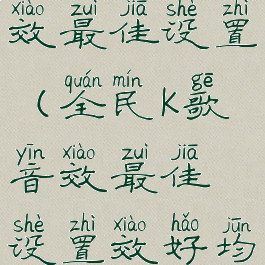 xiào zuì jiā shè zhì
效最佳设置
quán mín gē
(全民K歌
yīn xiào zuì jiā
音效最佳
shè zhì xiào hǎo jūn
设置效好均